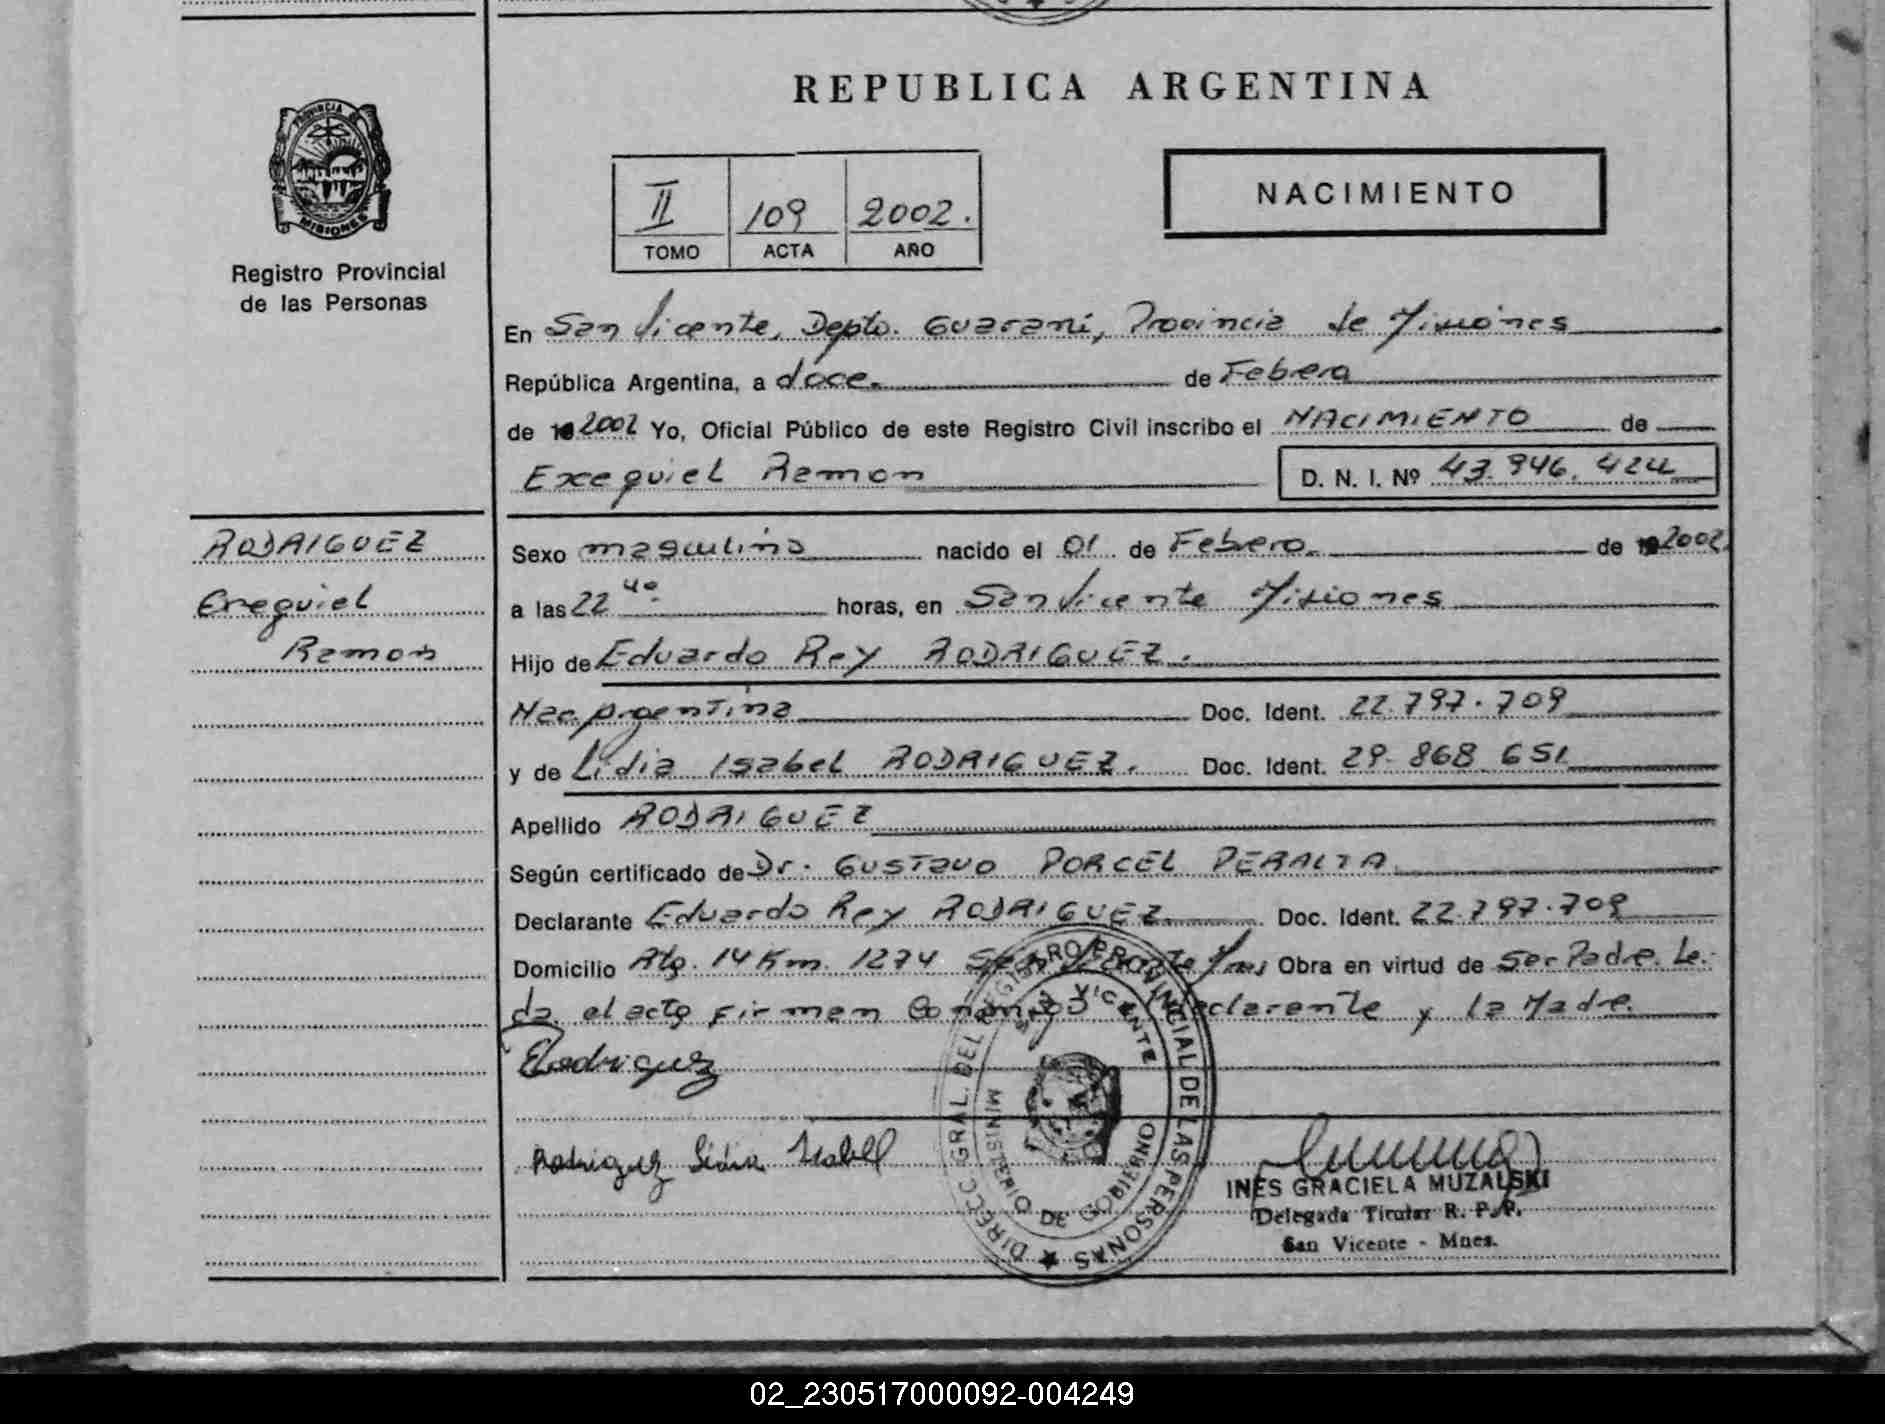 REPUBLICA ARGENTINA
PROVINCIA DE
MISIONES
Registro Provincial
de las Personas
II 109 2002.
TOMO ACTA AÑO
NACIMIENTO
En San Vicente, Depto. Guaraní, Provincia de Misiones
República Argentina, a doce. de Febrero
de 2002 Yo, Oficial Público de este Registro Civil inscribo el NACIMIENTO de
Exequiel Ramon D. N. I. Nº 43.946.424
RODRIGUEZ
Exequiel
Ramon
Sexo masculino nacido el 01 de Febrero. de 2002.
a las 22 40. horas, en San Vicente Misiones
Hijo de Eduardo Rey RODRIGUEZ.
Nac Argentina Doc. Ident. 22.797.709
y de Lidia Isabel RODRIGUEZ. Doc. Ident. 29.868.651
Apellido RODRIGUEZ
Según certificado de Dr. GUSTAVO PORCEL PERALTA
Declarante Eduardo Rey RODRIGUEZ Doc. Ident. 22.797.709
Domicilio Rta. 14 Km. 1274 San Vicente Mnes Obra en virtud de Ser Padre. Le-
da el acta firman Conmigo declarante y la Madre.
ERodriguez
Rodriguez Lidia Isabel
DIRECC GRAL. DEL REGISTRO PROVINCIAL DE LAS PERSONAS
SAN VICENTE
MINISTERIO DE GOBIERNO
INES GRACIELA MUZALSKI
Delegada Titular R. P. P.
San Vicente - Mnes.
02_230517000092-004249